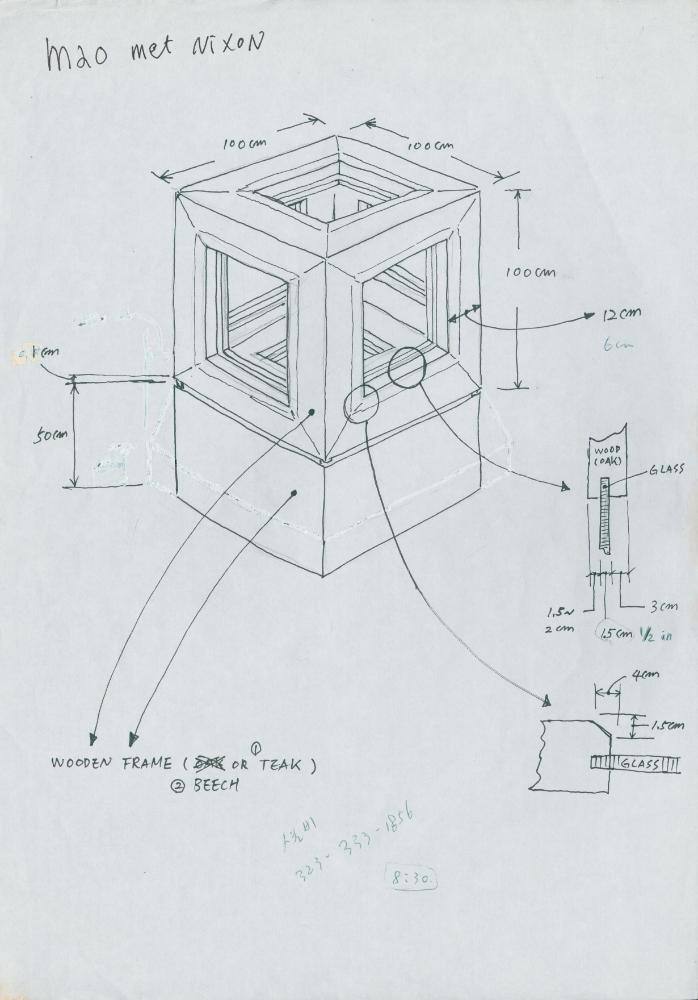 Mao met NIXON
100cm
100cm
100cm
12cm
6cm
50cm
WOOD
(OAK)
GLASS
1.5~
2cm
3cm
1.5cm 1/2 in
4cm
1.5cm
GLASS
①
WOODEN FRAME ( OAK OR TEAK )
② BEECH
323-333-1856
8:30.